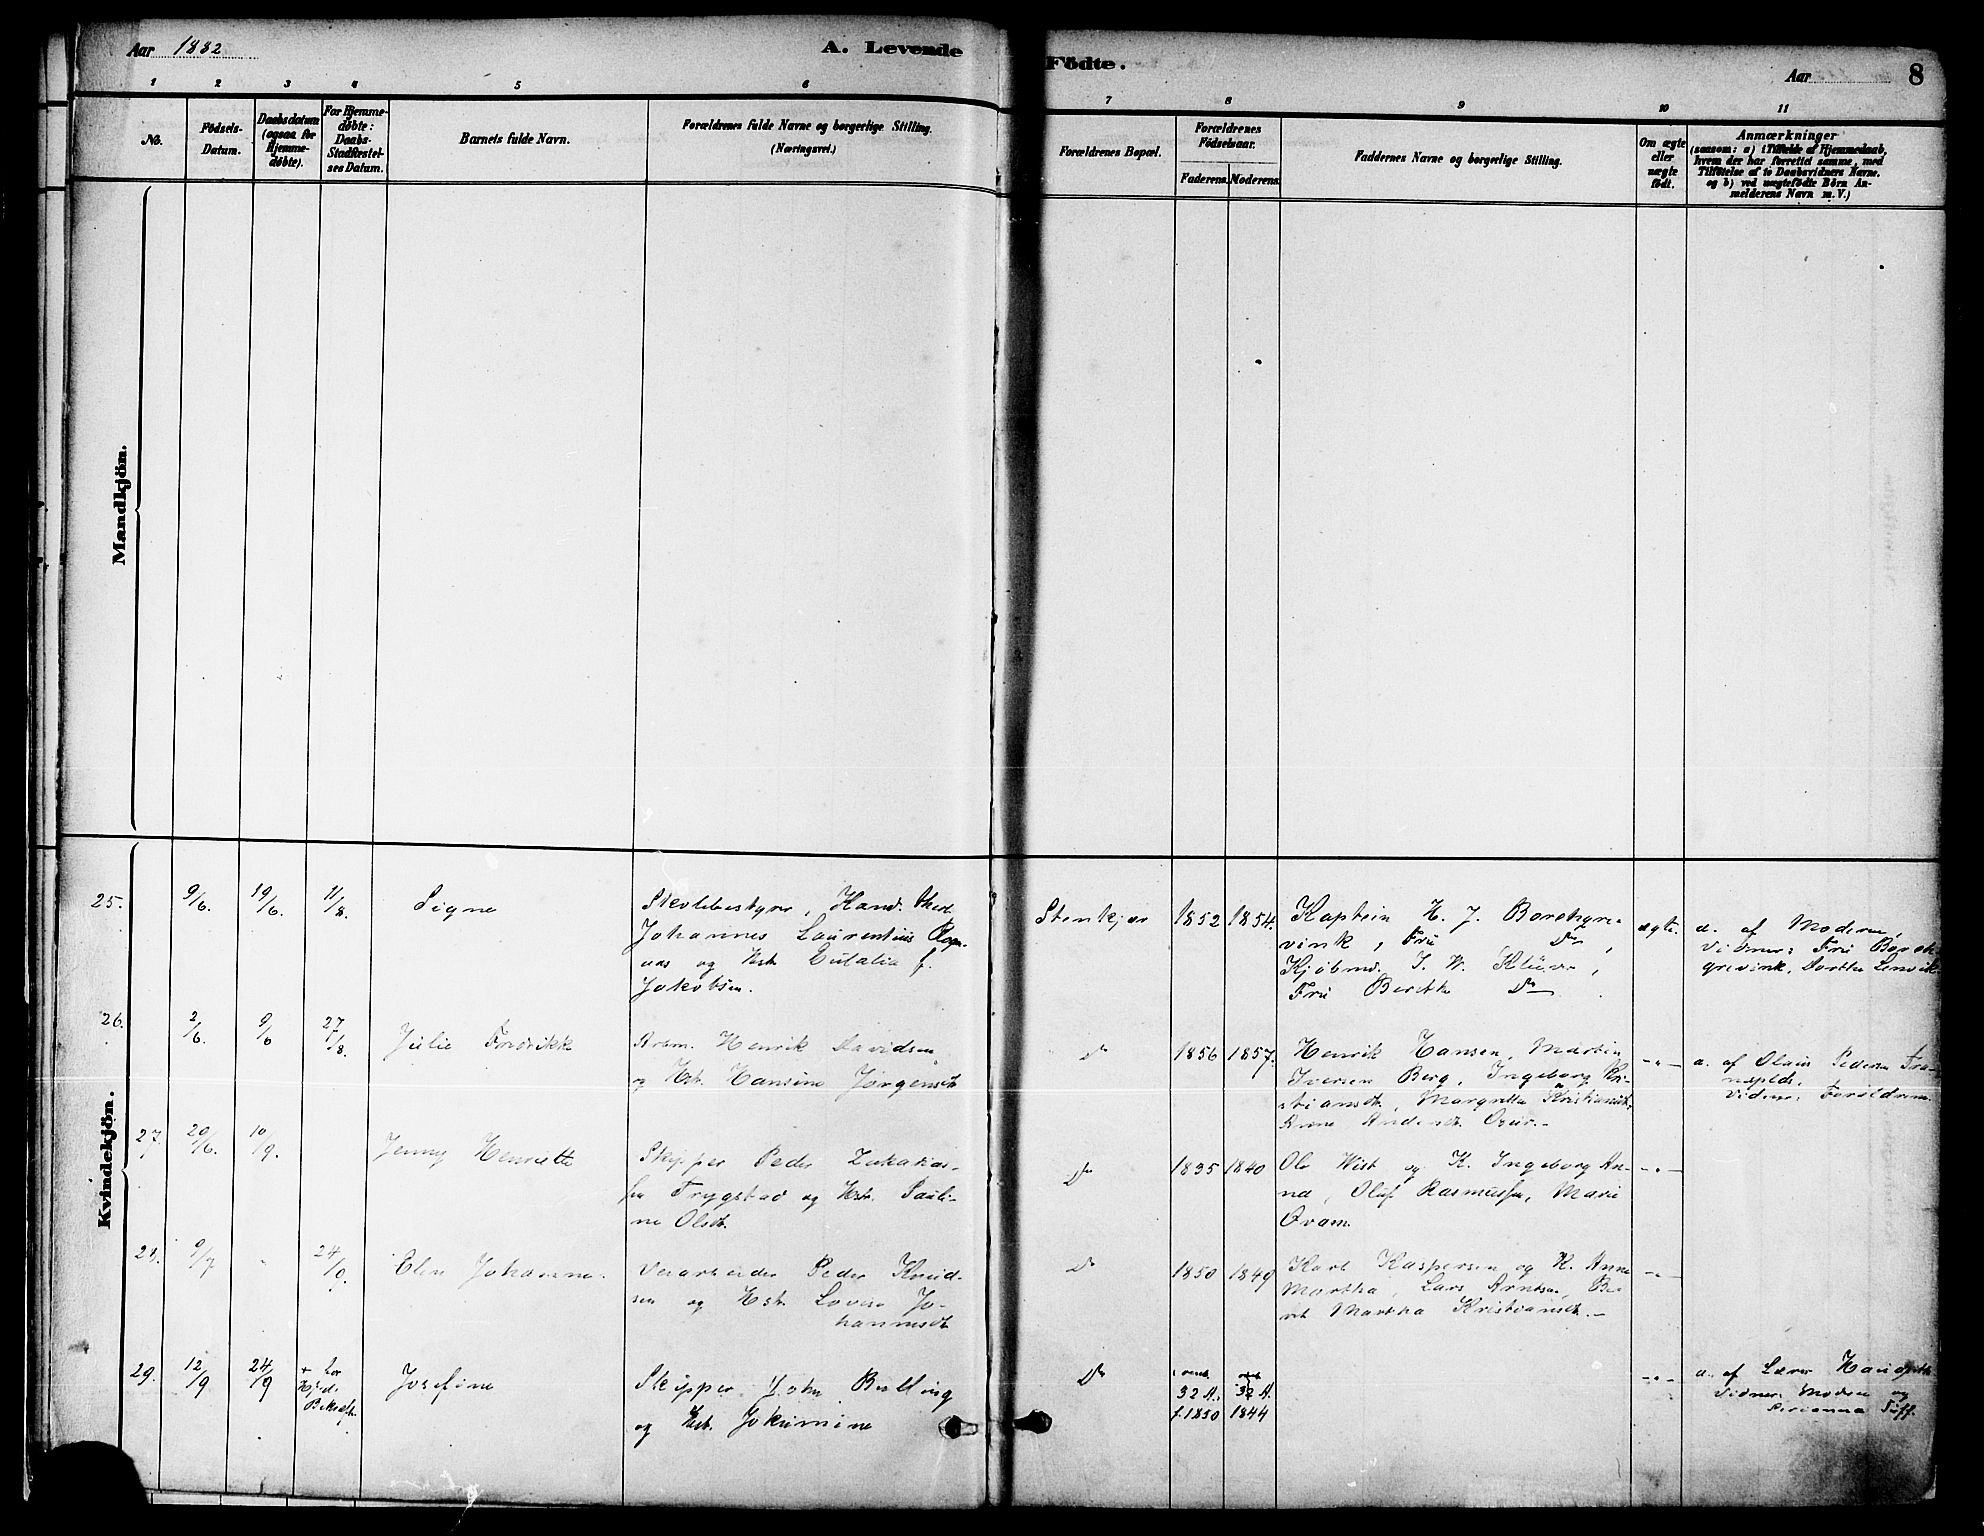 Aar 1882
A. Levende
Födte.
Aar
8
1 2 3 4 5 6 7 8 9 10 11
No.
Födsels-
Datum.
Daabsdatum
(ogsaa for
Hjemme-
døbte).
For Hjemme-
døbte:
Daabs-
Stadfæstel-
ses Datum.
Barnets fulde Navn.
Forældrenes fulde Navne og borgerlige Stilling.
(Næringsvei.)
Forældrenes Bopæl.
Forældrenes
Fødselsaar.
Faderens. Moderens.
Faddernes Navne og borgerlige Stilling.
Om ægte
eller
uægte
født.
Anmærkninger
(saasom: a) i Tilfælde af Hjemmedaab,
hvem der har forrettet samme, med
Tilføielse af to Daabsvidners Navne.
og b) ved uægtefødte Börn An-
melderens Navn m. V.)
Mandkjön.
Kvindekjön.
25. 9/6. 19/6. 11/8. Signe
Skolebestyrer, Kand. theol.
Johannes Laurentius
og Hst. Eulalia f.
Jakobsen.
Stenkjær 1852 1854.
Kaptein H. J. Borchgre-
vink, Fru Do,
Kjøbmd. I. W. Klüver,
Fru Berethe Do.
ægte.
a. af Moderen,
Vidner: Fru Borch-
grevink, Dorthea Lenvik
26. 2/6. 9/6 27/8. Julie Fredrikke
Henrik Davidsen
og Hst. Hansine Jørgensdt.
Do 1856 1857.
Henrik Hansen, Martin
Iversen Berg, Ingeborg Kri-
stiansdt., Margrethe Kristiansdt.
Andersdt.
-"-
a. af Olaus Pedersen
Vidner: Forældrene.
27. 20/6. 10/9. Jenny Henriette
Skipper Peder Zakarias-
sen Trygstad og Hst. Pauli-
ne Olsdt.
Do 1835 1840
Ole Wist og K. Ingeborg An-
na, Oluf Rasmussen, Marie
Qvam.
-"-
28. 9/7 " 24/9. Elen Johanne.
Peder Knud-
sen og Hst. Lovise Jo-
hannesdt.
Do 1850 1849
Karl Kaspersen og K. Anna
Martha, Lars Arntsen, Be-
rit Martha Kristiansdt.
-"-
29. 12/9 24/9 Josefine
Skipper John Bulling
og Hst. Jokumine
Do
32 A. 32 A.
f. 1850 1844
-"-
a. af Lærer
Vidner: Moderen og